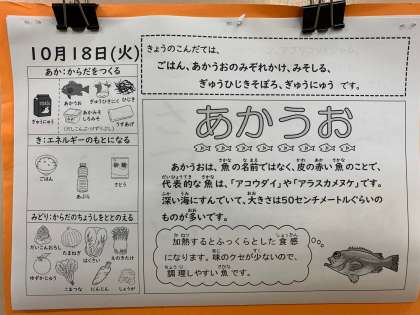 10月18日(火)
きょうのこんだては、
ごはん、あかうおのみぞれかけ、みそしる、
ぎゅうひじきそぼろ、ぎゅうにゅう です。
あか：からだをつくる
ぎゅうにゅう
あかうお
ぎゅうひきにく
ひじき
あかみそ
しろみそ
うすあげ
き：エネルギーのもとになる
ごはん
あぶら
さとう
みどり：からだのちょうしをととのえる
だいこんおろし
たまねぎ
はくさい
えのきたけ
ゆずかじゅう
こまつな
にんじん
しょうが
あかうお
あかうおは、魚の名前ではなく、皮の赤い魚のことで、
代表的な魚は、「アコウダイ」や「アラスカメヌケ」です。
深い海にすんでいて、大きさは50センチメートルぐらいの
ものが多いです。
加熱するとふっくらとした食感
になります。味のクセが少ないので、
調理しやすい魚です。